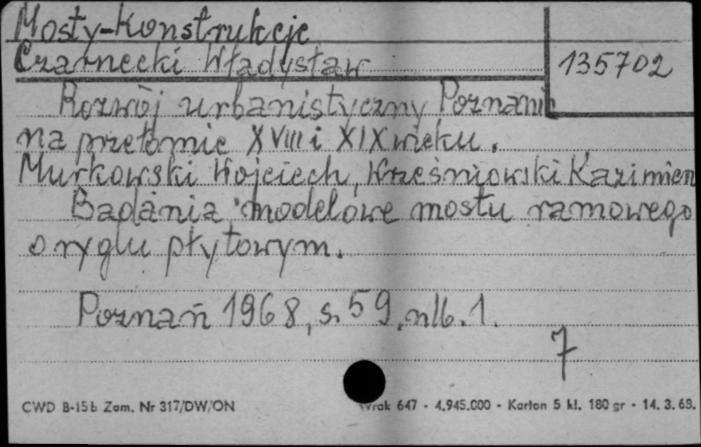 Mosty-Konstrukcje
Czarnecki Władysław
135702
Rozwój urbanistyczny Poznania
na przełomie XVIII i XIX wieku.
Murkowski Wojciech, Krześniowski Kazimierz
Badania modelowe mostu ramowego
o ryglu płytowym.
Poznań 1968, s. 59, nlb. 1.
7
CWD B-15b Zam. Nr 317/DW/ON
647 - 4.945.000 - Karton 5 kl. 180 gr - 14. 3. 68.